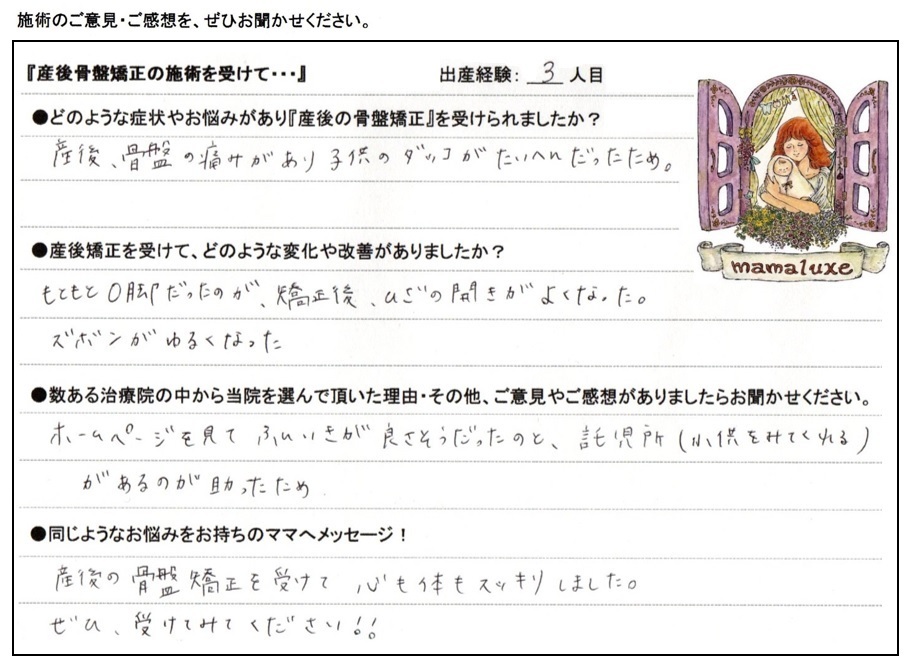 施術のご意見・ご感想を、ぜひお聞かせください。
『産後骨盤矯正の施術を受けて・・・』 出産経験： 3 人目
●どのような症状やお悩みがあり『産後の骨盤矯正』を受けられましたか？
産後、骨盤の痛みがあり子供のダッコがたいへんだったため。
●産後矯正を受けて、どのような変化や改善がありましたか？
mamaluxe
もともとO脚だったのが、矯正後、ひざの開きがよくなった。
ズボンがゆるくなった
●数ある治療院の中から当院を選んで頂いた理由・その他、ご意見やご感想がありましたらお聞かせください。
ホームページを見て ふんいきが 良さそうだったのと、託児所(小供をみてくれる)
があるのが助ったため
●同じようなお悩みをお持ちのママへメッセージ！
産後の骨盤矯正を受けて 心も体もスッキリしました。
ぜひ、受けてみてください!!